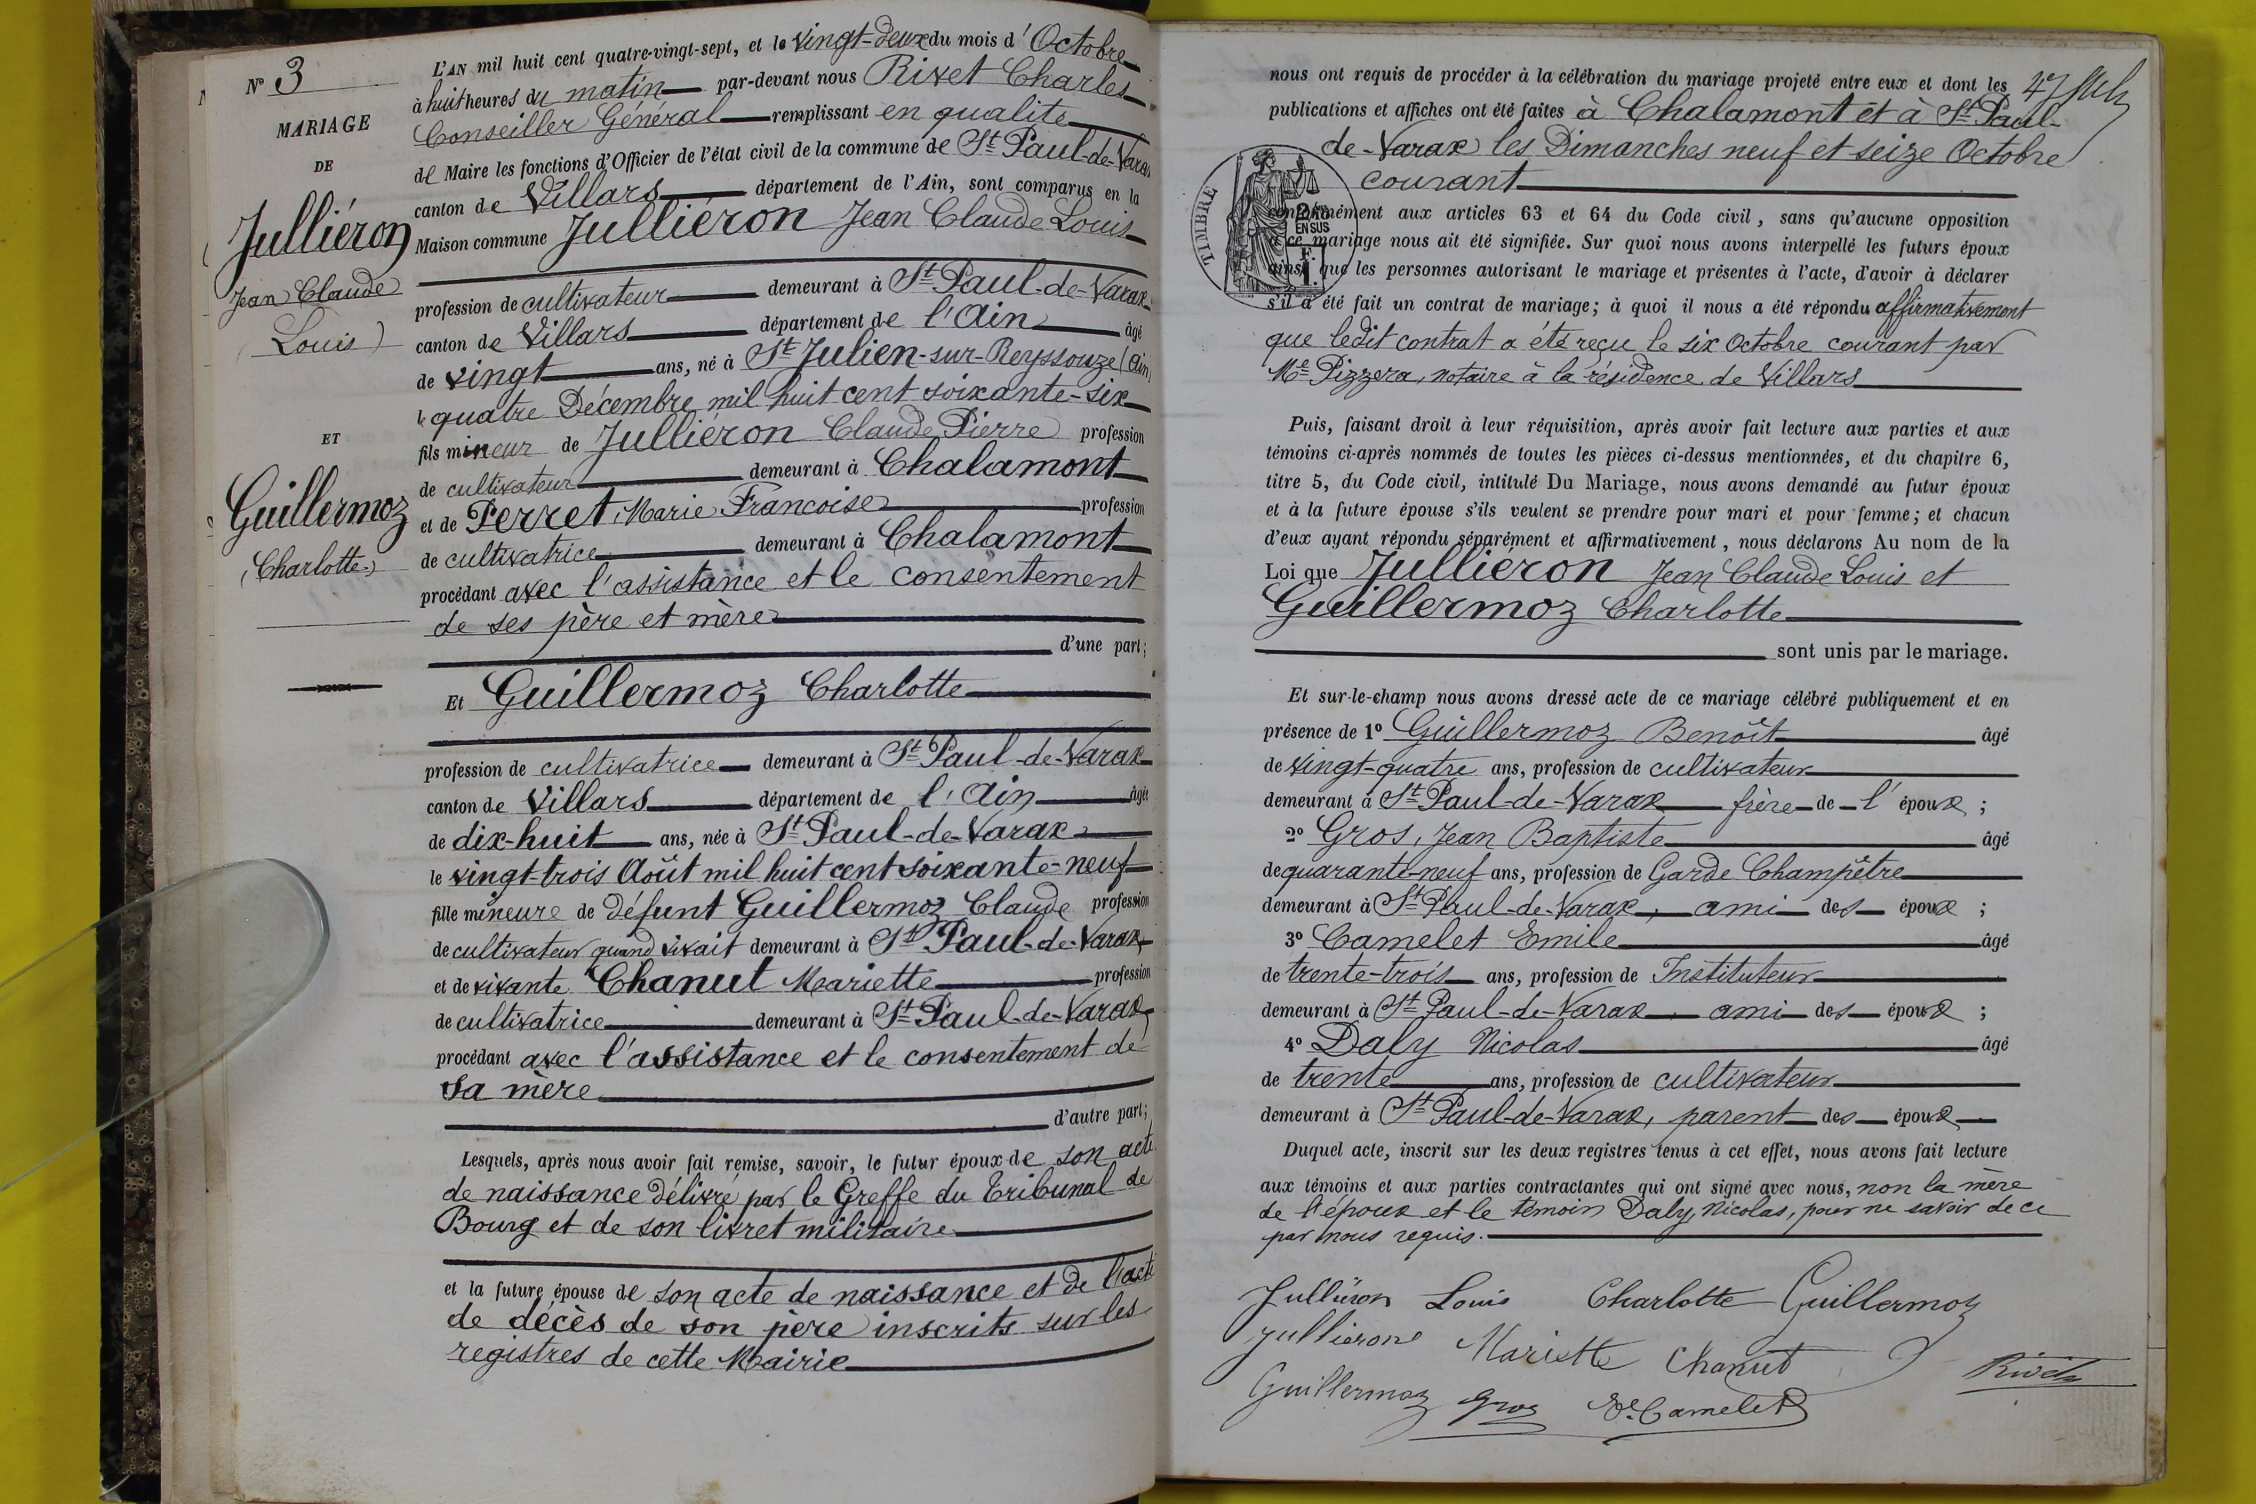 N° 3
MARIAGE
DE
Julliéron
Jean Claude
Louis
ET
Guillermoz
Charlotte
L'AN mil huit cent quatre-vingt-sept, et le vingt-deux du mois d'Octobre
à huit heures du matin par-devant nous Rivet Charles
Conseiller Général remplissant en qualité
de Maire les fonctions d'Officier de l'état civil de la commune de St Paul-de-Varax
canton de Villars département de l'Ain, sont comparus en la
Maison commune Julliéron Jean Claude Louis
profession de cultivateur demeurant à St Paul-de-Varax
canton de Villars département de l'Ain âgé
de vingt ans, né à St Julien-sur-Reyssouze (Ain)
le quatre Décembre mil huit cent soixante-six
fils mineur de Julliéron Claude Pierre profession
de cultivateur demeurant à Chalamont
et de Perret, Marie Francoise profession
de cultivatrice demeurant à Chalamont
procédant avec l'assistance et le consentement
de ses père et mère
d'une part;
Et Guillermoz Charlotte
profession de cultivatrice demeurant à St Paul-de-Varax
canton de Villars département de l'Ain âgée
de dix-huit ans, née à St Paul-de-Varax
le vingt-trois Août mil huit cent soixante-neuf
fille mineure de défunt Guillermoz Claude profession
de cultivateur quand vivait demeurant à St Paul-de-Varax
et de vivante Chanut Mariette profession
de cultivatrice demeurant à St Paul-de-Varax
procédant avec l'assistance et le consentement de
sa mère
d'autre part;
Lesquels, après nous avoir fait remise, savoir, le futur époux de son acte
de naissance délivré par le Greffe du Tribunal de
Bourg et de son livret militaire
et la future épouse de son acte de naissance et de l'acte
de décès de son père inscrits sur les
registres de cette Mairie
nous ont requis de procéder à la célébration du mariage projeté entre eux et dont les
publications et affiches ont été faites à Chalamont et à St Paul-
de-Varax les Dimanches neuf et seize Octobre
courant
TIMBRE
2/10
EN SUS
conformément aux articles 63 et 64 du Code civil, sans qu'aucune opposition
à ce mariage nous ait été signifiée. Sur quoi nous avons interpellé les futurs époux
ainsi que les personnes autorisant le mariage et présentes à l'acte, d'avoir à déclarer
s'il a été fait un contrat de mariage; à quoi il nous a été répondu affirmativement
que ledit contrat a été reçu le six Octobre courant par
Me Pizzera, notaire à la résidence de Villars
Puis, faisant droit à leur réquisition, après avoir fait lecture aux parties et aux
témoins ci-après nommés de toutes les pièces ci-dessus mentionnées, et du chapitre 6,
titre 5, du Code civil, intitulé Du Mariage, nous avons demandé au futur époux
et à la future épouse s'ils veulent se prendre pour mari et pour femme; et chacun
d'eux ayant répondu séparément et affirmativement, nous déclarons Au nom de la
Loi que Julliéron Jean Claude Louis et
Guillermoz Charlotte
sont unis par le mariage.
Et sur-le-champ nous avons dressé acte de ce mariage célébré publiquement et en
présence de 1° Guillermoz Benoît âgé
de vingt-quatre ans, profession de cultivateur
demeurant à St Paul-de-Varax frère de l'époux;
2° Gros, Jean Baptiste âgé
de quarante-neuf ans, profession de Garde Champêtre
demeurant à St Paul-de-Varax, ami des époux;
3° Camelet Emile âgé
de trente-trois ans, profession de Instituteur
demeurant à St Paul-de-Varax ami des époux;
4° Daly Nicolas âgé
de trente ans, profession de cultivateur
demeurant à St Paul-de-Varax, parent des époux
Duquel acte, inscrit sur les deux registres tenus à cet effet, nous avons fait lecture
aux témoins et aux parties contractantes qui ont signé avec nous, non la mère
de l'époux et le témoin Daly, Nicolas, pour ne savoir de ce
par nous requis.
Julliéron Louis Charlotte Guillermoz
Julliéron Mariette Chanut Rivet
Guillermoz Gros Ee. Camelet